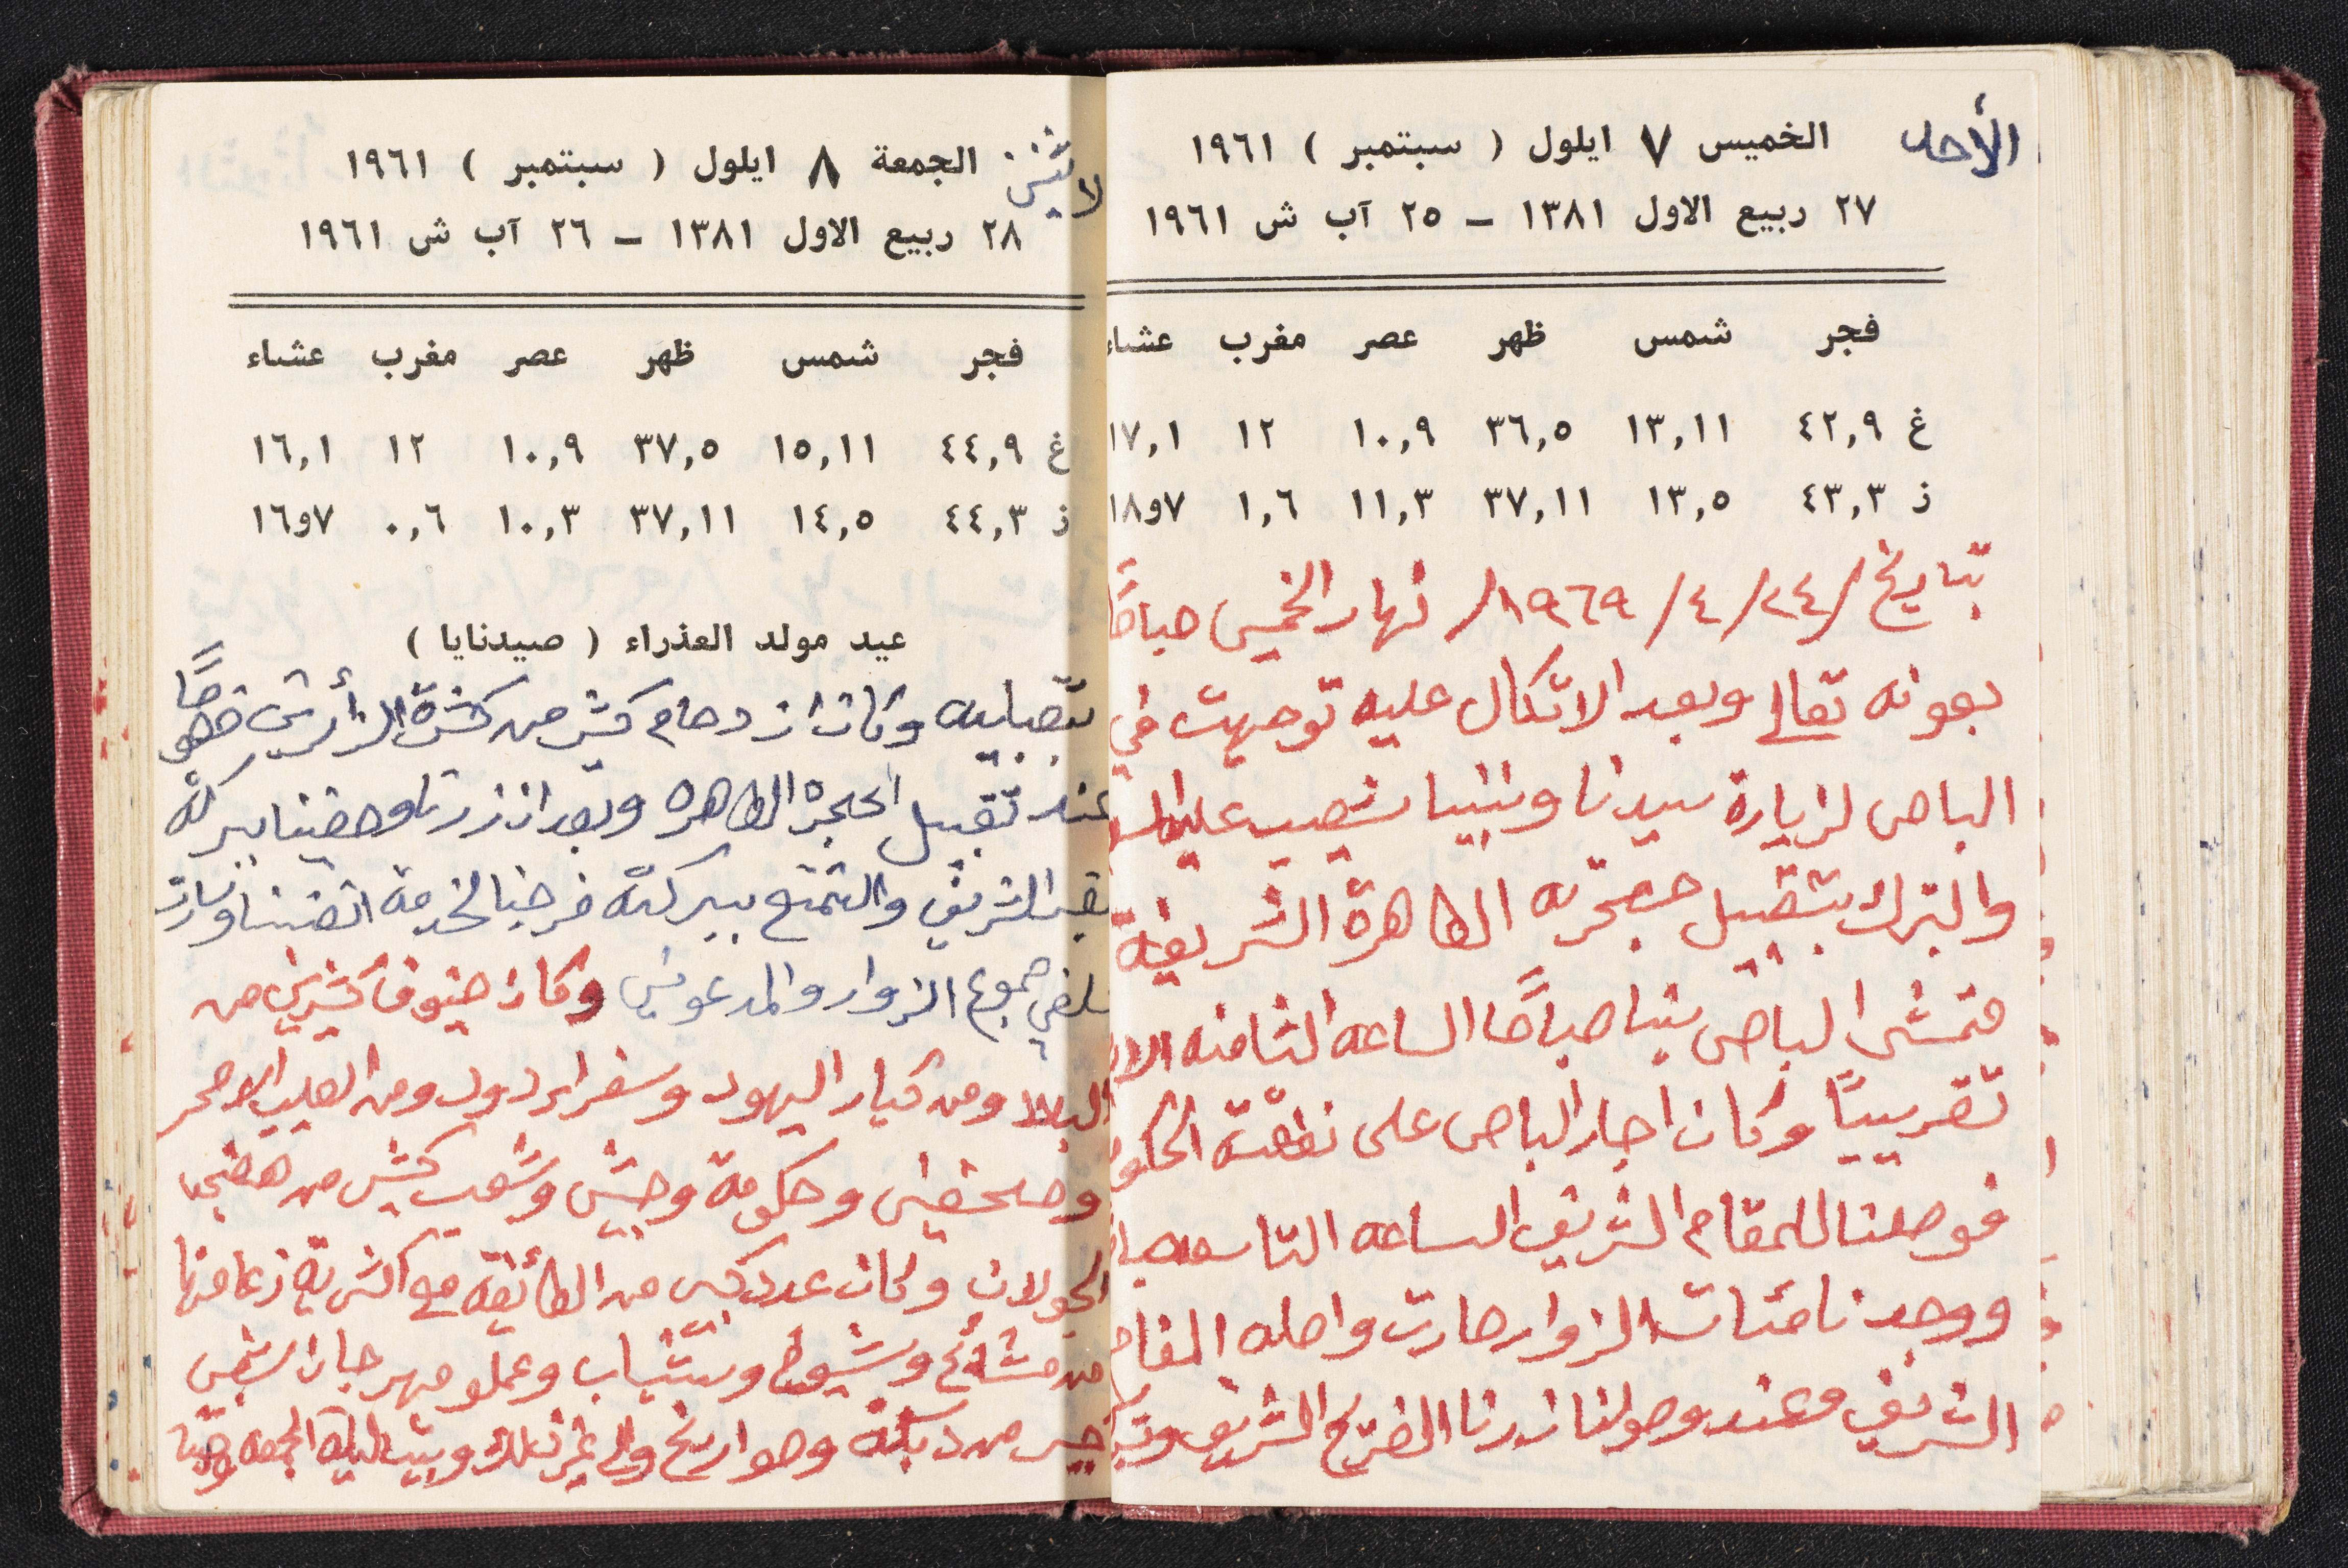 الأحد
الخميس ٧ ايلول ( سبتمبر ) ١٩٦١
٢٧ ربيع الاول ١٣٨١ – ٢٥ آب ش ١٩٦١
فجر شمس ظهر عصر مغرب عشاء
غ ٤٢,٩ ١٣,١١ ٣٦,٥ ١٠,٩ ١٢ ١٧,١
ز ٤٣,٣ ١٣,٥ ٣٧,١١ ١١,٣ ١,٦ ٧و١٨
بتاريخ /٢٤/ ٤/ ١٩٦٩/ نهار الخميس صباحًا
بعونه تعالى وبعد الاتكال عليه توجهت في
الباص لزيارة سيدنا ونبينا شعيب عليه
والتبرك بتقبيل حجرته الطاهرة الشريفة
فتمشى الباص بنا صباحًا الساعه الثامنه
تقريبيًا وكان اجار الباص على نفقة
فوصلنا للمقام الشريف الساعه التاسعه
ووجدنا مئات الزوار صارت واصله
الشريف وعند وصولنا زرنا الضريح الشريف
الاثنين
الجمعة ٨ ايلول ( سبتمبر ) ١٩٦١
٢٨ ربيع الاول ١٣٨١ – ٢٦ آب ش ١٩٦١
فجر شمس ظهر عصر مغرب عشاء
غ ٤٤,٩ ١٥,١١ ٣٧,٥ ١٠,٩ ١٢ ١٦,١
ز ٤٤,٣ ١٤,٥ ٣٧,١١ ١٠,٣ ٠,٦ ٧و١٦
عيد مولد العذراء ( صيدنايا )
وكان ازدحام كثير من كثرة الزأرين خصوصًا
عند تقبيل الحجره الطاهره وبعد ان زرنا وحضينا ببركة
الشريف والتمتع ببركته فرجنا لخدمة
جموع الزوار والمدعوين وكان ضيوف كثيرين من
البلاد ومن كبار اليهود وسفراء دول ومن الصليب الاحمر
وصحفين وحكومة وجيش وشعب كثير من هضبة
الجولان وكان عدد كبير من الطائفه مع اكثرية زعامتها
من مشائخ وشيوخ وشباب وعملو مهرجان شعبي
من دبكة وصواريخ والى غير ذلك ليلة الجمعه